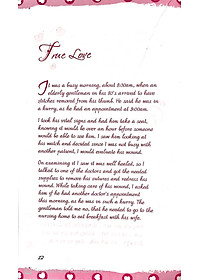 True Love
It was a busy morning, about 8:30am, when an
elderly gentleman in his 80's arrived to have
stitches removed from his thumb. He said he was in
a hurry, as he had an appointment at 9:00am.
I took his vital signs and had him take a seat,
knowing it would be over an hour before someone
would be able to see him. I saw him looking at
his watch and decided, since I was not busy with
another patient, I would evaluate his wound.
On examining it I saw it was well healed, so I
talked to one of the doctors and got the needed
supplies to remove his sutures and redress his
wound. While taking care of his wound, I asked
him if he had another doctor's appointment
this morning, as he was in such a hurry. The
gentleman told me no, that he needed to go to the
nursing home to eat breakfast with his wife.